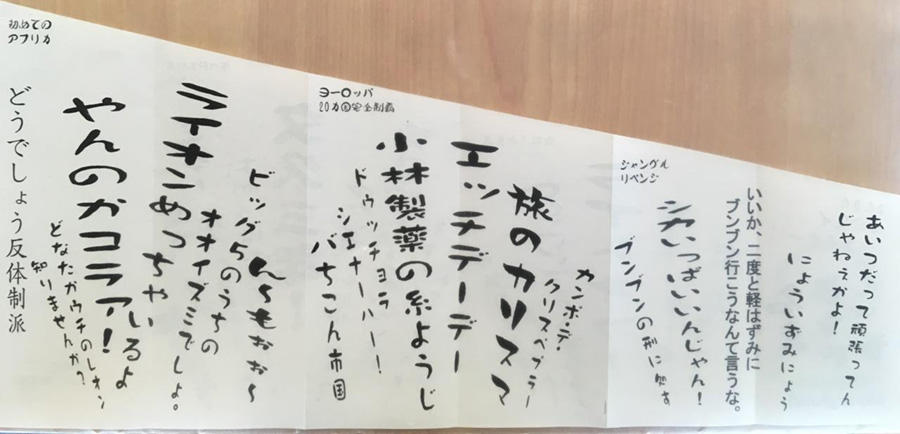 あいつだって頑張ってん
じゃねえかよ!
にょういずみにょう
いいか、二度と軽はずみに
ブンブン行こうなんて言うな。
ジャングル
リベンジ
シカいっぱいいんじゃん!
ブンブンの刑に処す
ヨーロッパ
20カ国完全制覇
旅のカリスマ
カンボ・デ・
クリスペプラー
エッチデーデー
小林製薬の糸ようじ
ドゥッチョラ
シエナーハー!
バちこん市国
初めての
アフリカ
ん〜もおぉ〜
ビッグ5のうちの
オオイズミでしょ。
ライオンめっちゃいるよ
やんのかコラァ!
どなたかウチのレオン
知りませんか?
どうでしょう反体制派